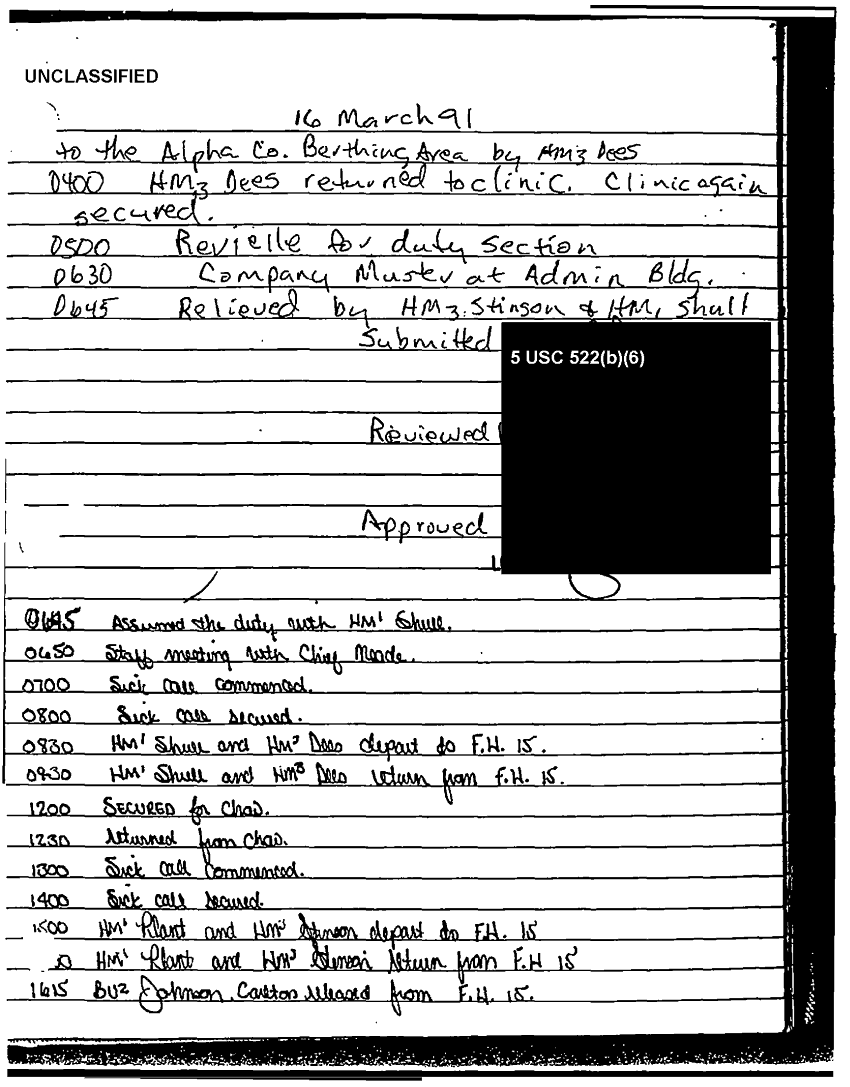 UNCLASSIFIED
16 March 91
to the Alpha Co. Berthing Area by HM3 Dees
0400 HM3 Dees returned to clinic. Clinic again
secured.
0500 Revielle for duty section
0630 Company Muster at Admin Bldg.
0645 Relieved by HM3. Stinson & HM1 Shull
Submitted
5 USC 522(b)(6)
Reviewed
Approved
0645 Assumed the duty with HM1 Shull.
0650 Staff meeting with Chief Meade.
0700 Sick call commenced.
0800 Sick call secured.
0830 HM1 Shull and HM3 Dees depart to F.H. 15.
0930 HM1 Shull and HM3 Dees return from F.H. 15.
1200 SECURED for Chow.
1230 Returned from Chow.
1300 Sick call commenced.
1400 Sick call secured.
1500 HM1 Plant and HM3 Stinson depart to F.H. 15
HM1 Plant and HM3 Stinson return from F.H 15
1615 BU2 Johnson, Carlton released from F.H. 15.